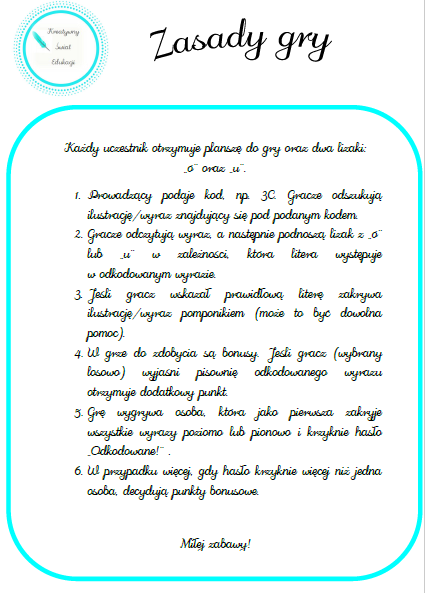 Kreatywny
Świat
Edukacji
Zasady gry
Każdy uczestnik otrzymuje planszę do gry oraz dwa lizaki:
„ó" oraz „u".
1. Prowadzący podaje kod, np. 3C. Gracze odszukują
ilustrację/wyraz znajdujący się pod podanym kodem.
2. Gracze odczytują wyraz, a następnie podnoszą lizak z „ó"
lub „u" w zależności, która litera występuje
w odkodowanym wyrazie.
3. Jeśli gracz wskazał prawidłową literę zakrywa
ilustrację/wyraz pomponikiem (może to być dowolna
pomoc).
4. W grze do zdobycia są bonusy. Jeśli gracz (wybrany
losowo) wyjaśni pisownię odkodowanego wyrazu
otrzymuje dodatkowy punkt.
5. Grę wygrywa osoba, która jako pierwsza zakryje
wszystkie wyrazy poziomo lub pionowo i krzyknie hasło
„Odkodowane!" .
6. W przypadku więcej, gdy hasło krzyknie więcej niż jedna
osoba, decydują punkty bonusowe.
Miłej zabawy!